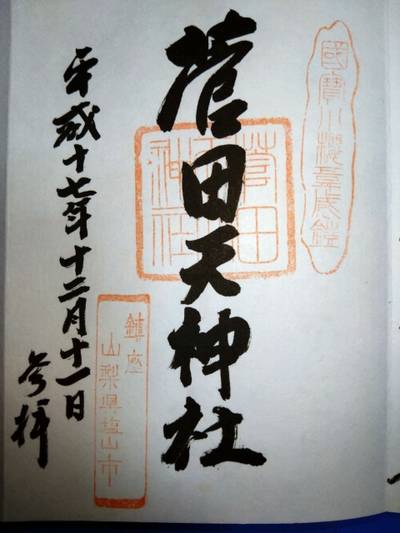 國寶小桜韋威鎧
菅田天神社
菅田天神社
鎮座
山梨県塩山市
平成十七年十二月十一日
参拝